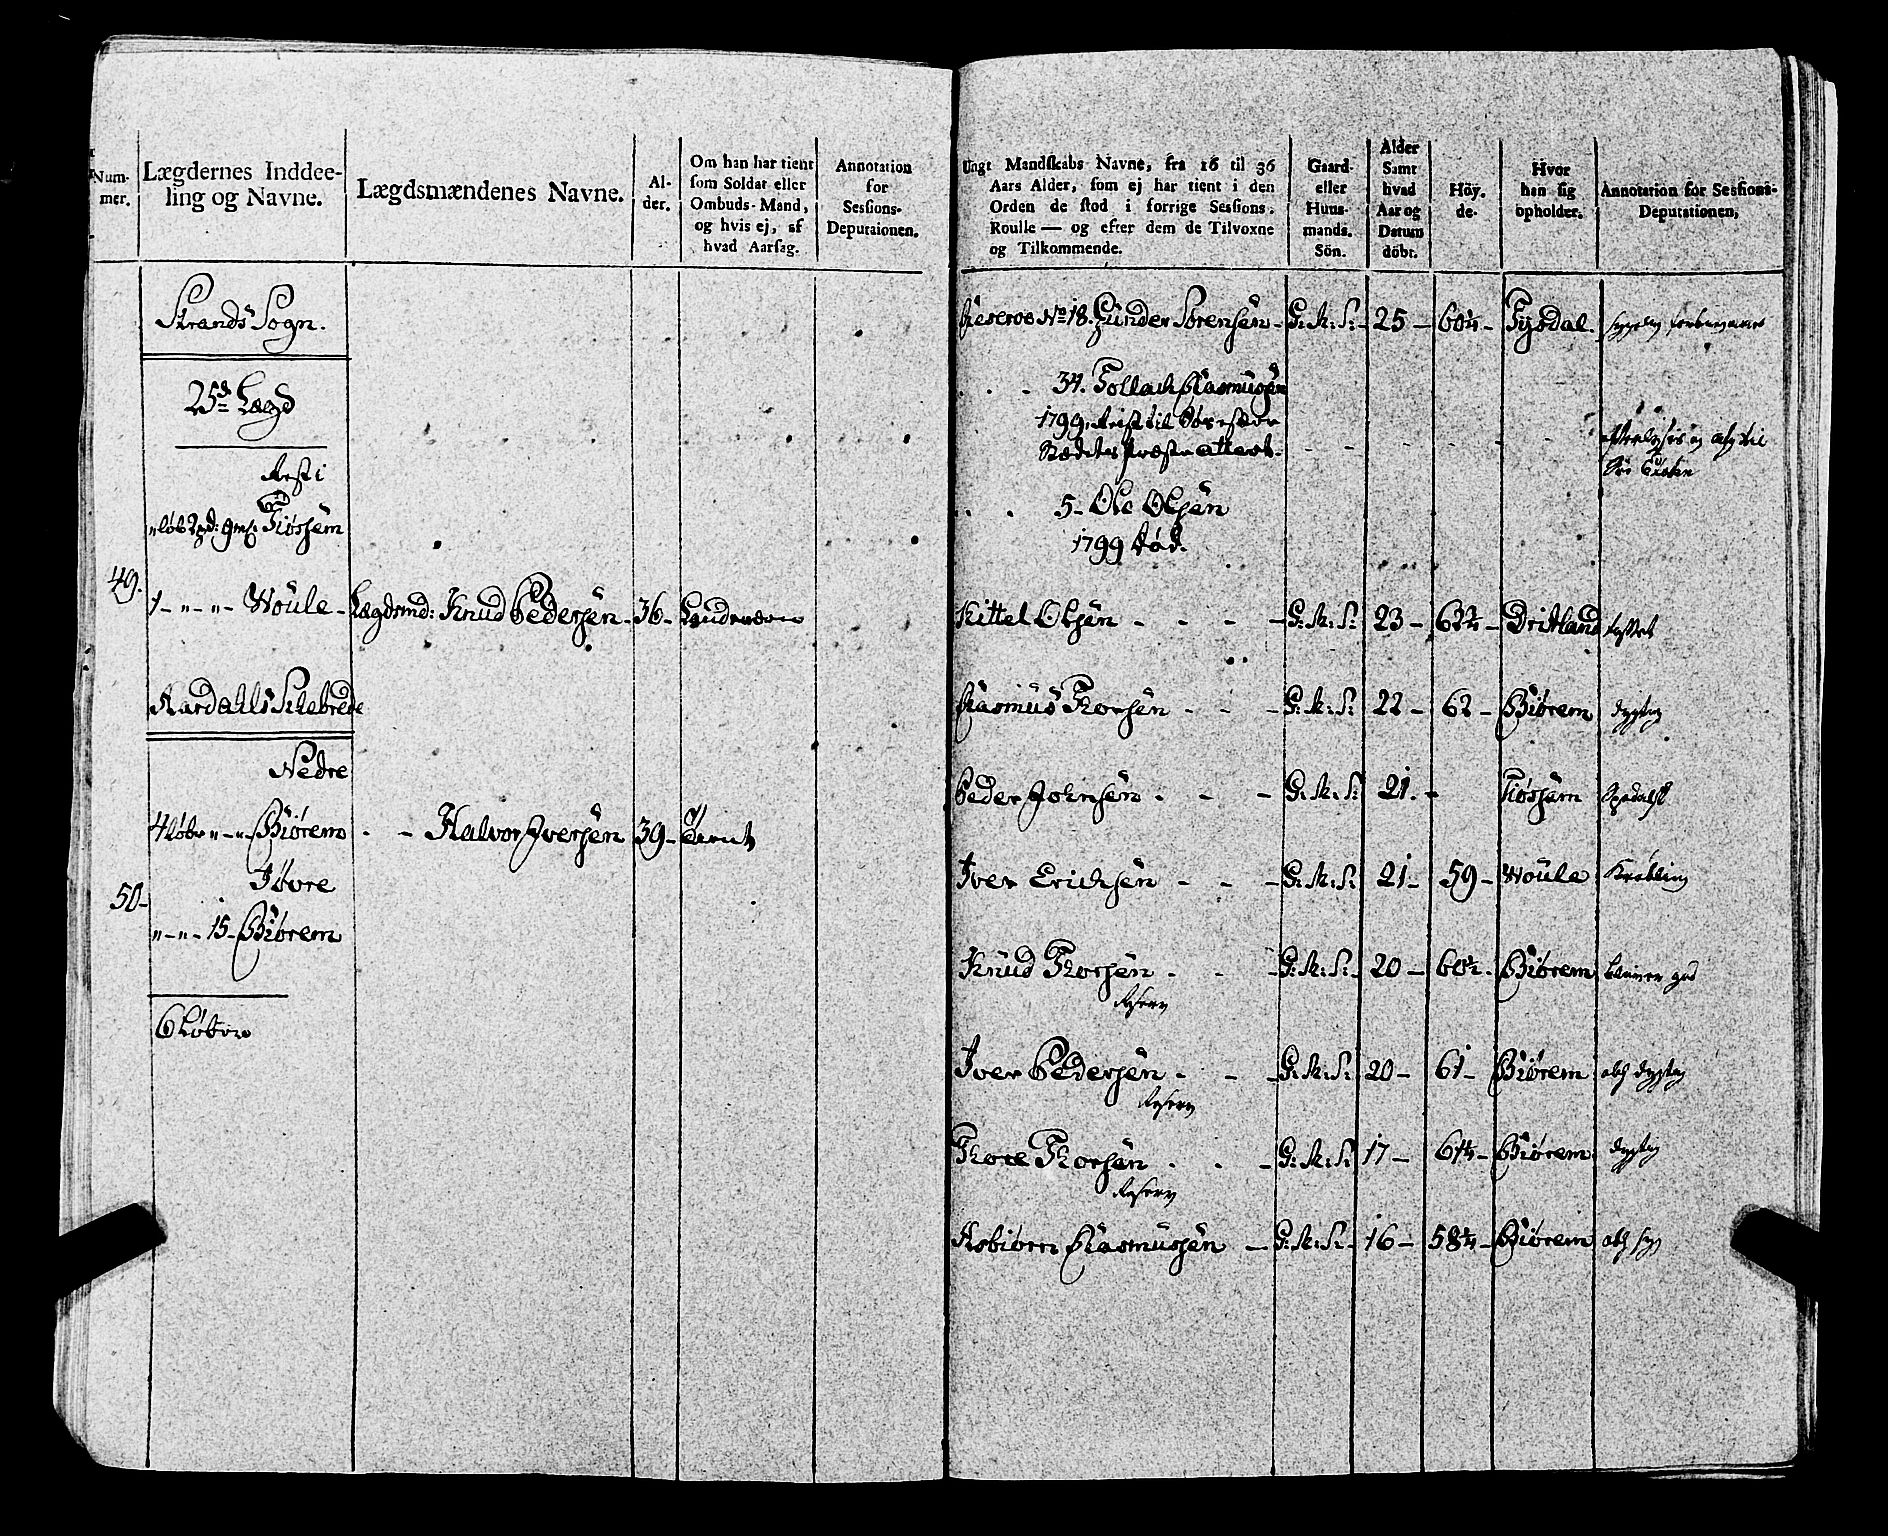 Num-
mer.
Lægdernes Inddee-
ling og Navne.
Lægdsmændenes Navne.
Al-
der.
Om han har tient
som Soldat eller
Ombuds-Mand,
og hvis ej, af
hvad Aarsag.
Annotation
for
Sessions-
Deputaionen.
Strands Sogn.
25de Lægd
Rest i
Fiøssem
49.
1 - " - " - Woule - Lægdsmd: Knud Pedersen - 36 - Landeværn
Aardahls Schebrede
Nedre
4 løber " - " Biørem - - Halvor Iversen 39 - Tient
Øvre
50 -
" - " - 15 - Biørem
6 Løber
Ungt Mandskabs Navne, fra 16 til 36
Aars Alder, som ej har tient i den
Orden de stod i forrige Sessions-
Roulle — og efter dem de Tilvoxne
og Tilkommende.
Gaard-
eller
Huus-
mands-
Sön.
Alder
Samt
hvad
Aar og
Datum
döbt.
Höy-
de.
Hvor
han sig
opholder.
Annotation for Sessions-
Deputationen,
Reserve No 18. Gunder Sörensen - G. M. S. - 25 - 60¼ - Tysdal.
34. Tollach Rasmusen
1799
attest.
5 - Ole Olsen
1799 død.
Kittel Olsen - - - G. M. S. 23 - Dritland
Rasmus Thorsen - - - G. M. S. 22 - 62 - Biørem dygtig
Peder Johnsen - - - G. M. S. 21 - Fiøssem Spedalsk
Iver Erichsen - - - G. M. S. 21 - 59 - Woule Krøbling
Knud Thorsen - - - G. M. S. 20 - Biørem
Reserv
Iver Pedersen - - - G. M. S. 20 - 61 - Biørem dygtig
Reserv
Thore Thorsen - - - G. M. S. 17 - 61¼ - Biørem dygtig
Reserv
Asbiörn Rasmussen - G. M. S. - 16 - 58¼ - Biørem